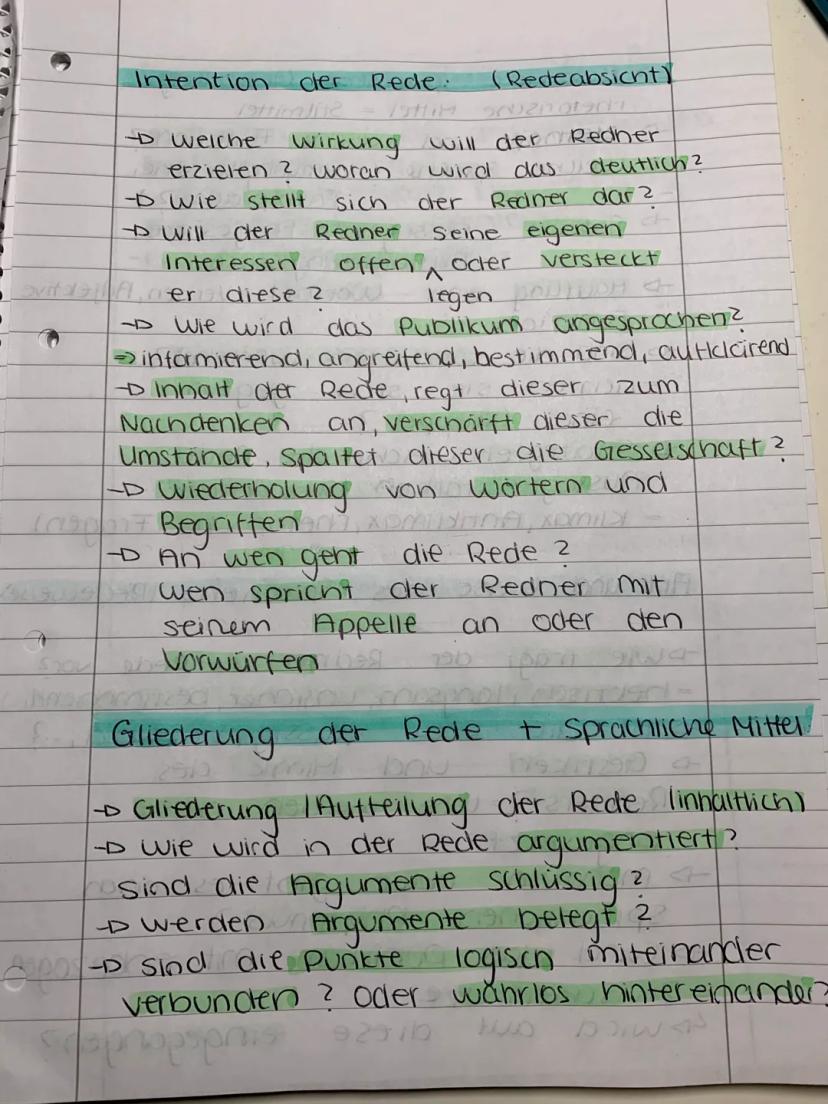 Intention der Rede: (Redeabsicht)
→ Welche Wirkung will der Redner
erzielen? woran wird das deutlich?
→ Wie stellt sich der Redner dar?
→ Will der Redner seine eigenen
Interessen offen ^ oder versteckt
er diese? legen
→ Wie wird das Publikum angesprochen?
⇒ informierend, angreifend, bestimmend, aufklärend
→ Inhalt der Rede, regt dieser zum
Nachdenken an, verschärft dieser die
Umstände, spaltet dieser die Gesselschaft?
→ Wiederholung von Wörtern und
Begriffen
→ An wen geht die Rede?
wen spricht der Redner mit
seinem Appelle an oder den
Vorwürfen
Gliederung der Rede + Sprachliche Mittel
→ Gliederung / Aufteilung der Rede (inhaltlich)
→ Wie wird in der Rede argumentiert?
sind die Argumente schlüssig?
→ werden Argumente belegt?
→ sind die Punkte logisch miteinander
verbunden? Oder wahrlos hintereinander?